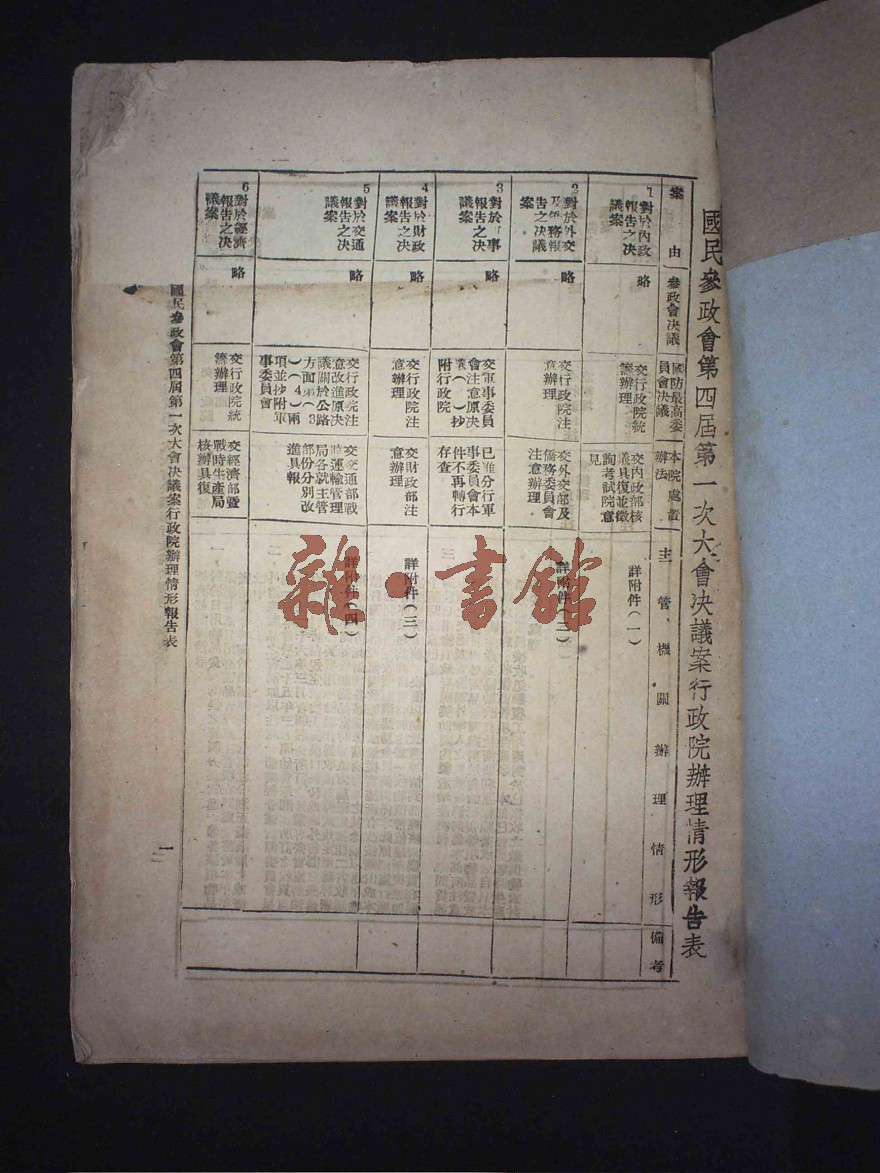 國民參政會第四屆第一次大會決議案行政院辦理情形報告表
案由
參政會決議
國防最高委
員會決議
本院處置
辦法
主管機關辦理情形
備考
1
對於內政
報告之決
議案
略
交行政院統
籌辦理
交內政部核
議具復並徵
詢考試院意
見
詳附件(一)
2
對於外交
及僑務報
告之決議
案
略
交行政院注
意辦理
交外交部及
僑務委員會
注意辦理
詳附件(二)
3
對於軍事
報告之決
議案
略
交軍事委員
會注意原決
議()抄
附行政院
已進分行軍
事委員會本
件不再轉行
存查
4
對於財政
報告之決
議案
略
交行政院注
意辦理
交財政部注
意辦理
詳附件(三)
5
對於交通
報告之決
議案
略
交行政院注
意改進原決
議關於公路
方面第(3
)(4)兩
項並抄附軍
事委員會
交交通部戰
時運輸管理
局各就主管
部份分別改
進具報
詳附件(四)
6
對於經濟
報告之決
議案
略
交行政院統
籌辦理
交經濟部暨
戰時生產局
核辦具復
國民參政會第四屆第一次大會決議案行政院辦理情形報告表
一
雜·書館